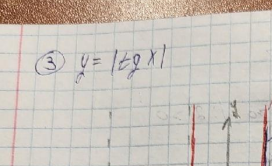 ③ y = |tg x|